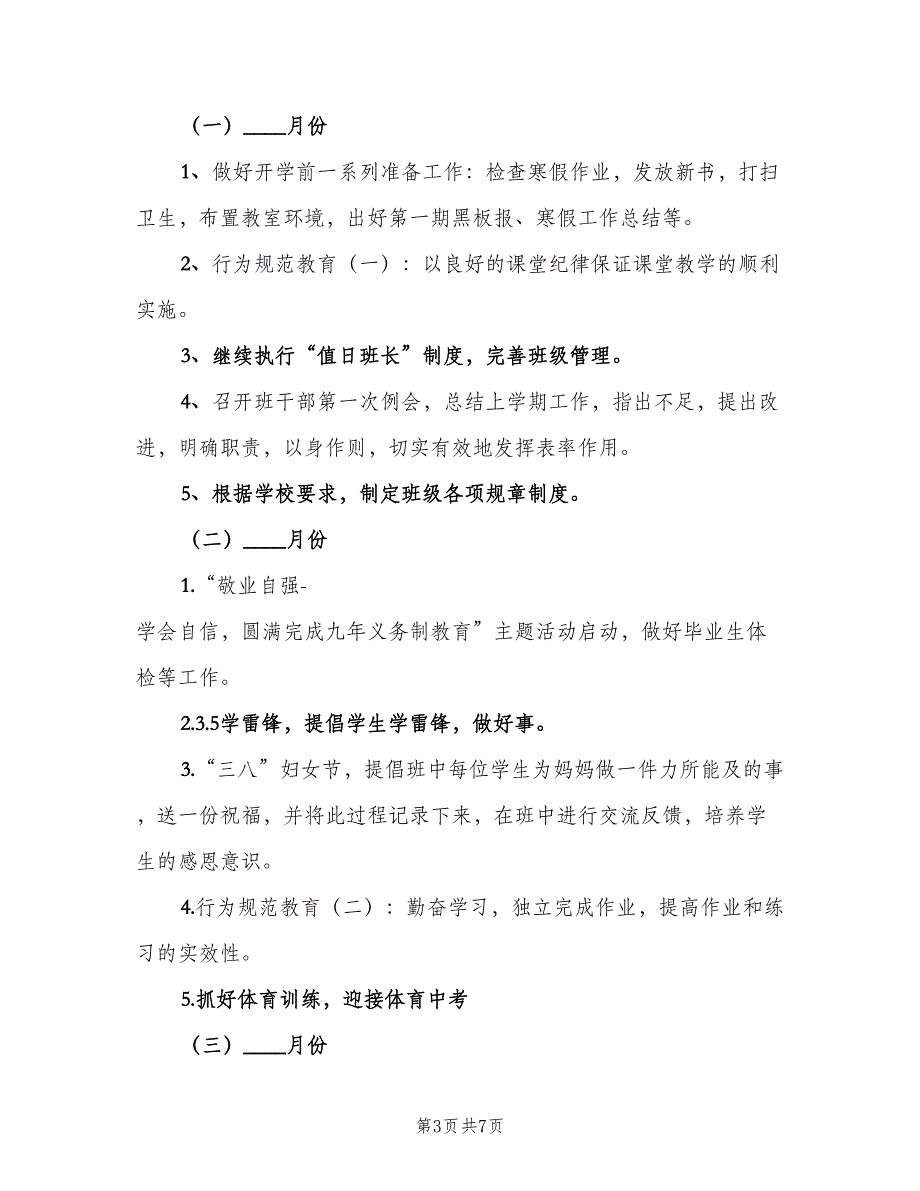 （一）____月份
1、做好开学前一系列准备工作：检查寒假作业，发放新书，打扫
卫生，布置教室环境，出好第一期黑板报、寒假工作总结等。
2、行为规范教育（一）：以良好的课堂纪律保证课堂教学的顺利
实施。
3、继续执行“值日班长”制度，完善班级管理。
4、召开班干部第一次例会，总结上学期工作，指出不足，提出改
进，明确职责，以身作则，切实有效地发挥表率作用。
5、根据学校要求，制定班级各项规章制度。
（二）____月份
1.“敬业自强-
学会自信，圆满完成九年义务制教育”主题活动启动，做好毕业生体
检等工作。
2.3.5学雷锋，提倡学生学雷锋，做好事。
3.“三八”妇女节，提倡班中每位学生为妈妈做一件力所能及的事
，送一份祝福，并将此过程记录下来，在班中进行交流反馈，培养学
生的感恩意识。
4.行为规范教育（二）：勤奋学习，独立完成作业，提高作业和练
习的实效性。
5.抓好体育训练，迎接体育中考
（三）____月份
第3页 共7页